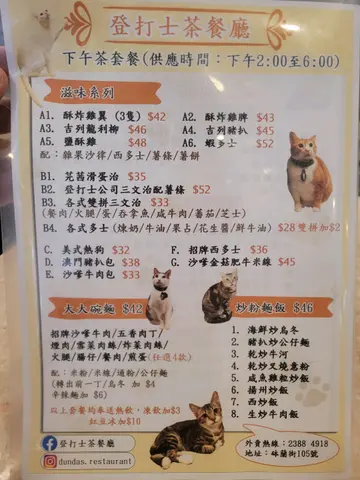 登打士茶餐廳
下午茶套餐(供應時間：下午2:00至6:00)
滋味系列
A1. 酥炸雞翼 (3隻) $42
A2. 酥炸雞脾 $43
A3. 吉列龍利柳 $46
A4. 吉列豬扒 $45
A5. 鹽酥雞 $48
A6. 蝦多士 $52
配：雜果沙律/西多士/薯條/薯餅
B1. 芫茜滑蛋治 $35
B2. 登打士公司三文治配薯條 $52
B3. 各式雙拼三文治 $33
(餐肉/火腿/蛋/吞拿魚/咸牛肉/蕃茄/芝士)
B4. 各式多士 (煉奶/牛油/果占/花生醬/鮮牛油) $28 雙拼加$2
C. 美式熱狗 $32
F. 招牌西多士 $36
D. 澳門豬扒包 $38
G. 沙嗲金菇肥牛米線 $45
E. 沙嗲牛肉包 $33
大大碗麵 $42
招牌沙嗲牛肉/五香肉丁/
煙肉/雪菜肉絲/炸菜肉絲/
火腿/腸仔/餐肉/煎蛋(任選4款)
配：米粉/米線/通粉/公仔麵
(轉出前一丁/烏冬 加 $4
辛辣麵加 $6)
以上套餐均奉送熱飲，凍飲加$3
紅豆冰加$10
炒粉麵飯 $46
1. 海鮮炒烏冬
2. 豬扒炒公仔麵
3. 乾炒牛河
4. 乾炒叉燒意粉
5. 咸魚雞粒炒飯
6. 揚州炒飯
7. 西炒飯
8. 生炒牛肉飯
登打士茶餐廳
dundas.restaurant
外賣熱線：2388 4918
地址：砵蘭街105號